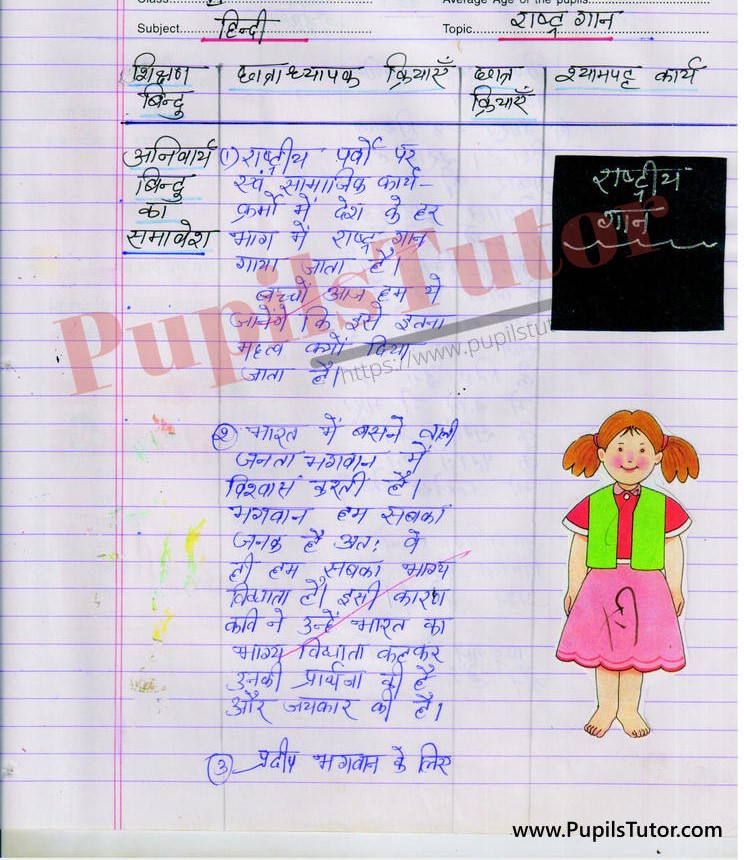 Average Age of the pupils
Subject हिन्दी Topic राष्ट्र गान
शिक्षण बिन्दु
छात्राध्यापक क्रियाएँ
छात्र क्रियाएँ
श्यामपट्ट कार्य
अनिवार्य
बिन्दु
का
समावेश
(1) राष्ट्रीय पर्वो पर
एवं सामाजिक कार्य-
क्रमों में देश के हर
भाग में राष्ट्र गान
गाया जाता है।
बच्चों आज हम ये
जानेंगे कि इसे इतना
महत्व क्यों दिया
जाता है।
राष्ट्रीय
गान
(2) भारत में बसने वाली
जनता भगवान में
विश्वास करती है।
भगवान हम सबका
जनक है अतः वे
ही हम सबका भाग्य
विधाता हैं। इसी कारण
कवि ने उन्हें भारत का
भाग्य विधाता कहकर
उनकी प्रार्थना की है
और जयकार की है।
(3) प्रदीप भगवान के लिए
PupilsTutor
https://www.pupilstut
www.PupilsTutor.com